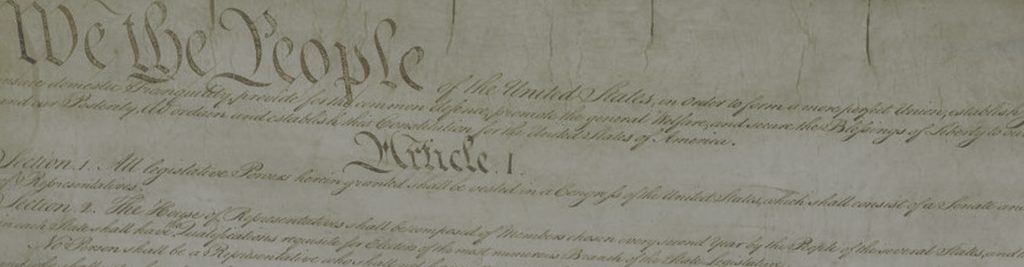 We the People of the United States, in Order to form a more perfect Union, establish
insure domestic Tranquility, provide for the common defence, promote the general Welfare, and secure the Blessings of Liberty to our
and our Posterity, do ordain and establish this Constitution for the United States of America.
Article. I.
Section. 1. All legislative Powers herein granted shall be vested in a Congress of the United States, which shall consist of a Senate and
of Representatives.
Section. 2. The House of Representatives shall be composed of Members chosen every second Year by the People of the several States, and
in each State shall have Qualifications requisite for Electors of the most numerous Branch of the State Legislature.
No Person shall be a Representative who shall not have